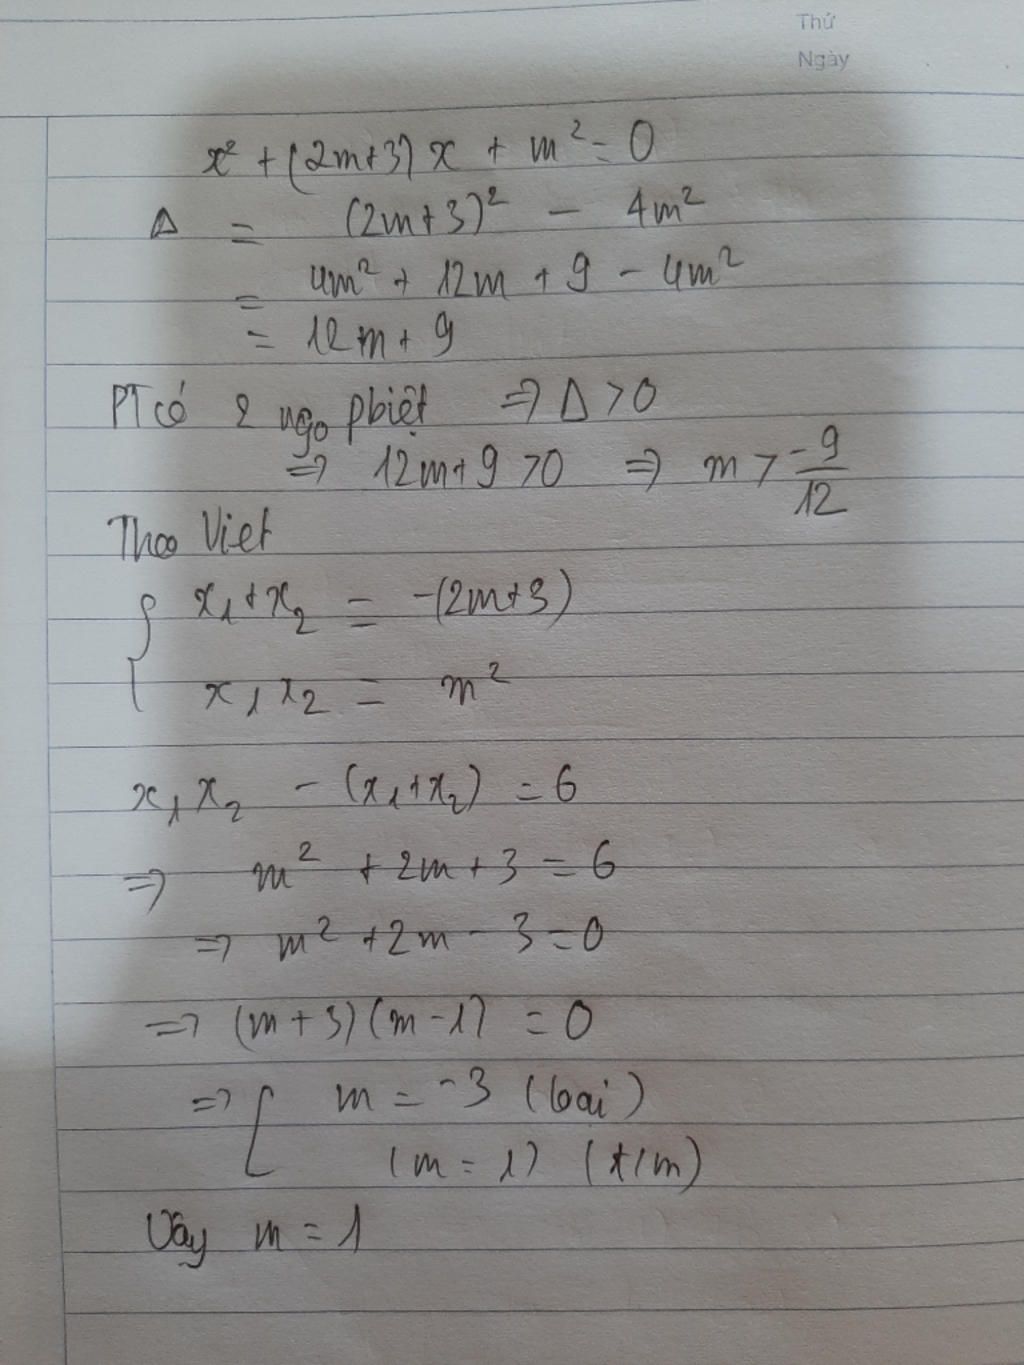 Thứ
Ngày
x² + (2m+3) x + m² = 0
Δ = (2m+3)² - 4m²
= 4m² + 12m + 9 - 4m²
= 12m + 9
PT có 2 ngo pbiệt ⇒ Δ > 0
⇒ 12m+9 >0 ⇒ m > -9/12
Theo Viet
{ x₁+x₂ = -(2m+3)
x₁x₂ = m²
x₁x₂ - (x₁+x₂) = 6
⇒ m² + 2m + 3 = 6
⇒ m² + 2m - 3 = 0
⇒ (m+3)(m-1) = 0
⇒ [ m = -3 (loại)
(m = 1) (t/m)
Vậy m = 1